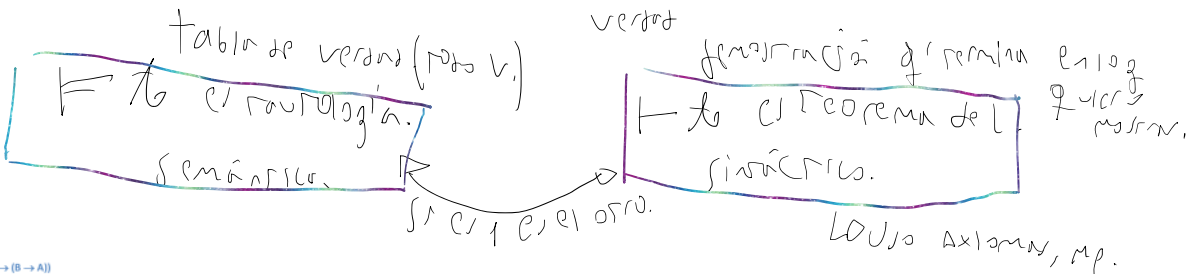 tabla de verdad (todo V.)
⊨ t es tautología.
semántico.
verdad
demostración q' termina en log
quieres
mostrar.
⊢ t es teorema de L
sintáctico.
si es 1 es el otro.
LO Uso Axiomas, MP.
→ (B → A))